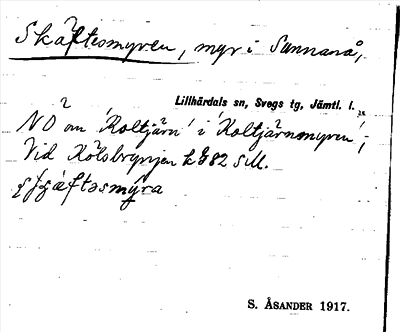 Skaftesmyren, myr i Sunnanå,
Lillhärdals sn, Svegs tg, Jämtl. l.
NO om 'Koltjärn' i 'Koltjärnsmyren';
Vid Kolsbryggen
S. ÅSANDER 1917.